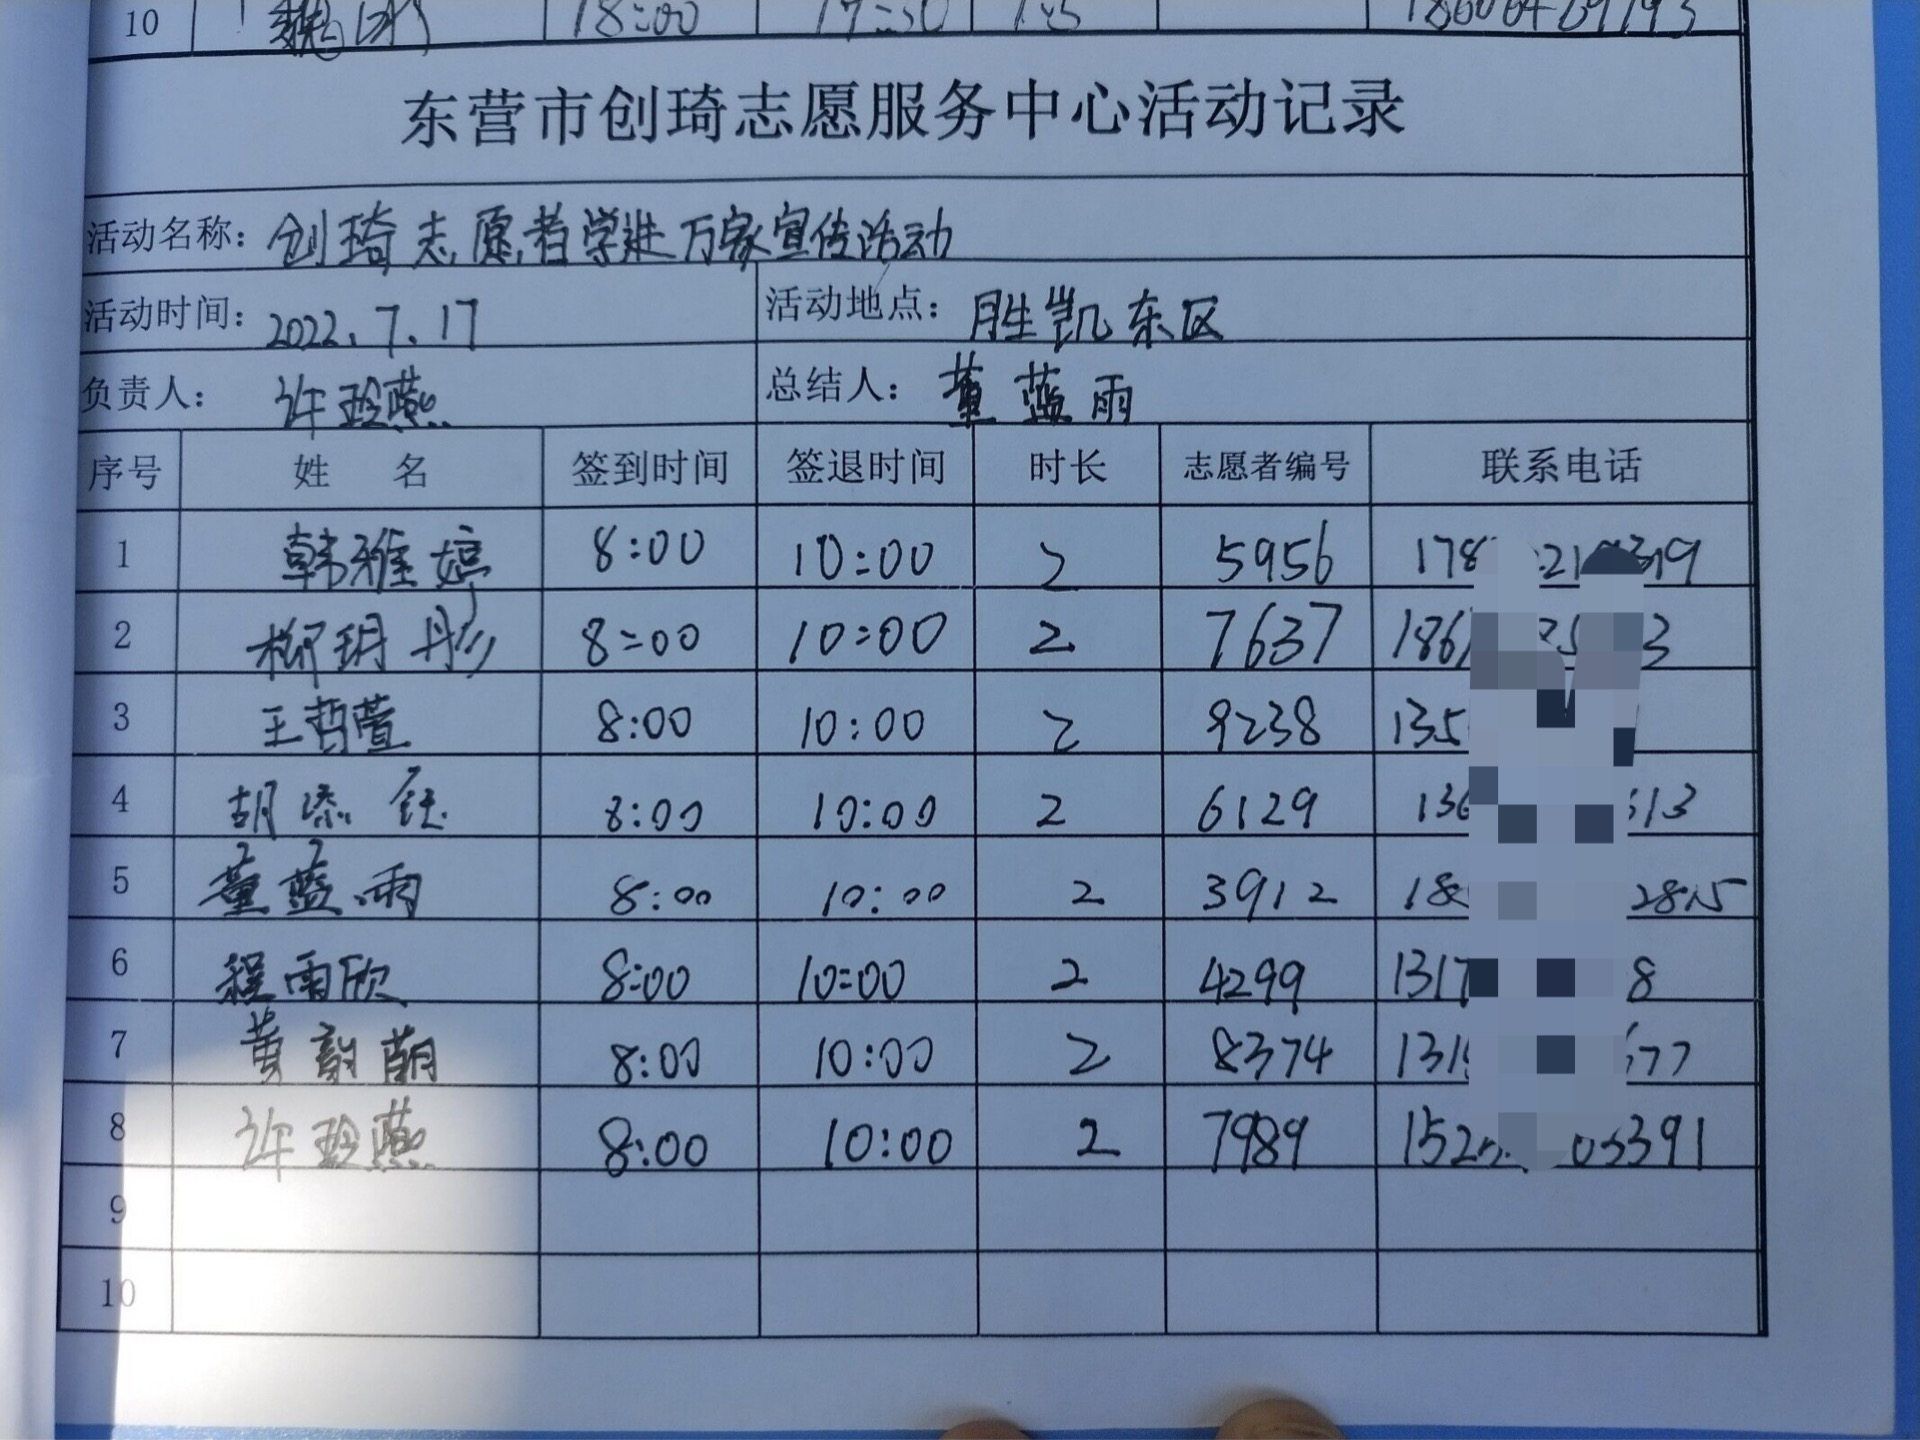 10 18:00
东营市创琦志愿服务中心活动记录
活动名称： 创琦志愿者学进万家宣传活动
活动时间： 2022.7.17 活动地点： 胜凯东区
负责人： 许玲燕 总结人： 董蓝雨
序号 姓 名 签到时间 签退时间 时长 志愿者编号 联系电话
1 韩雅婷 8:00 10:00 2 5956 178
2 柳玥彤 8:00 10:00 2 7637 186 3
3 王哲萱 8:00 10:00 2 9238 135
4 胡添钰 8:00 10:00 2 6129 136 513
5 董蓝雨 8:00 10:00 2 3912 18 2815
6 程雨欣 8:00 10:00 2 4299 1317 8
7 黄韵萌 8:00 10:00 2 8374 131 677
8 许玲燕 8:00 10:00 2 7989 152 391
9
10